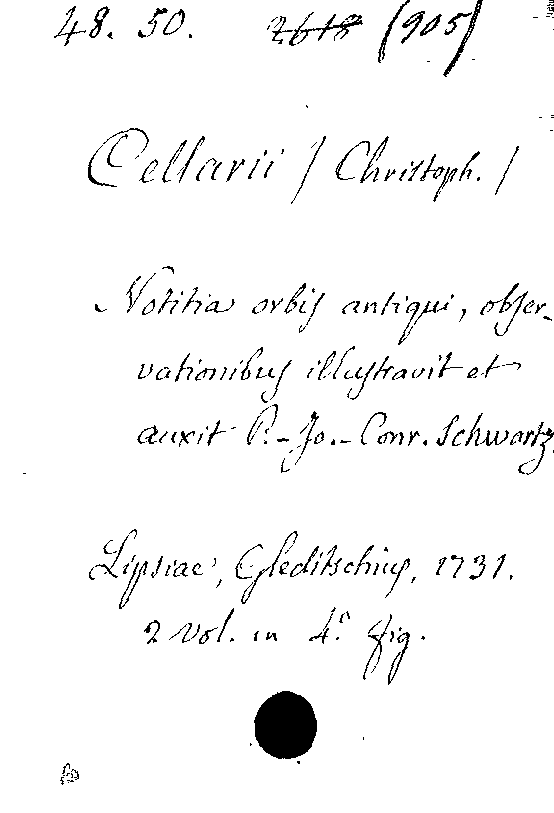 48. 50. 2618 (905)
Cellarii / Christoph. /
Notitia orbis antiqui, obser-
vationibus illustravit et
auxit P.-Jo.-Conr. Schwartz.
Lipsiae, Gleditschius, 1731.
2 vol. in 4.° fig.